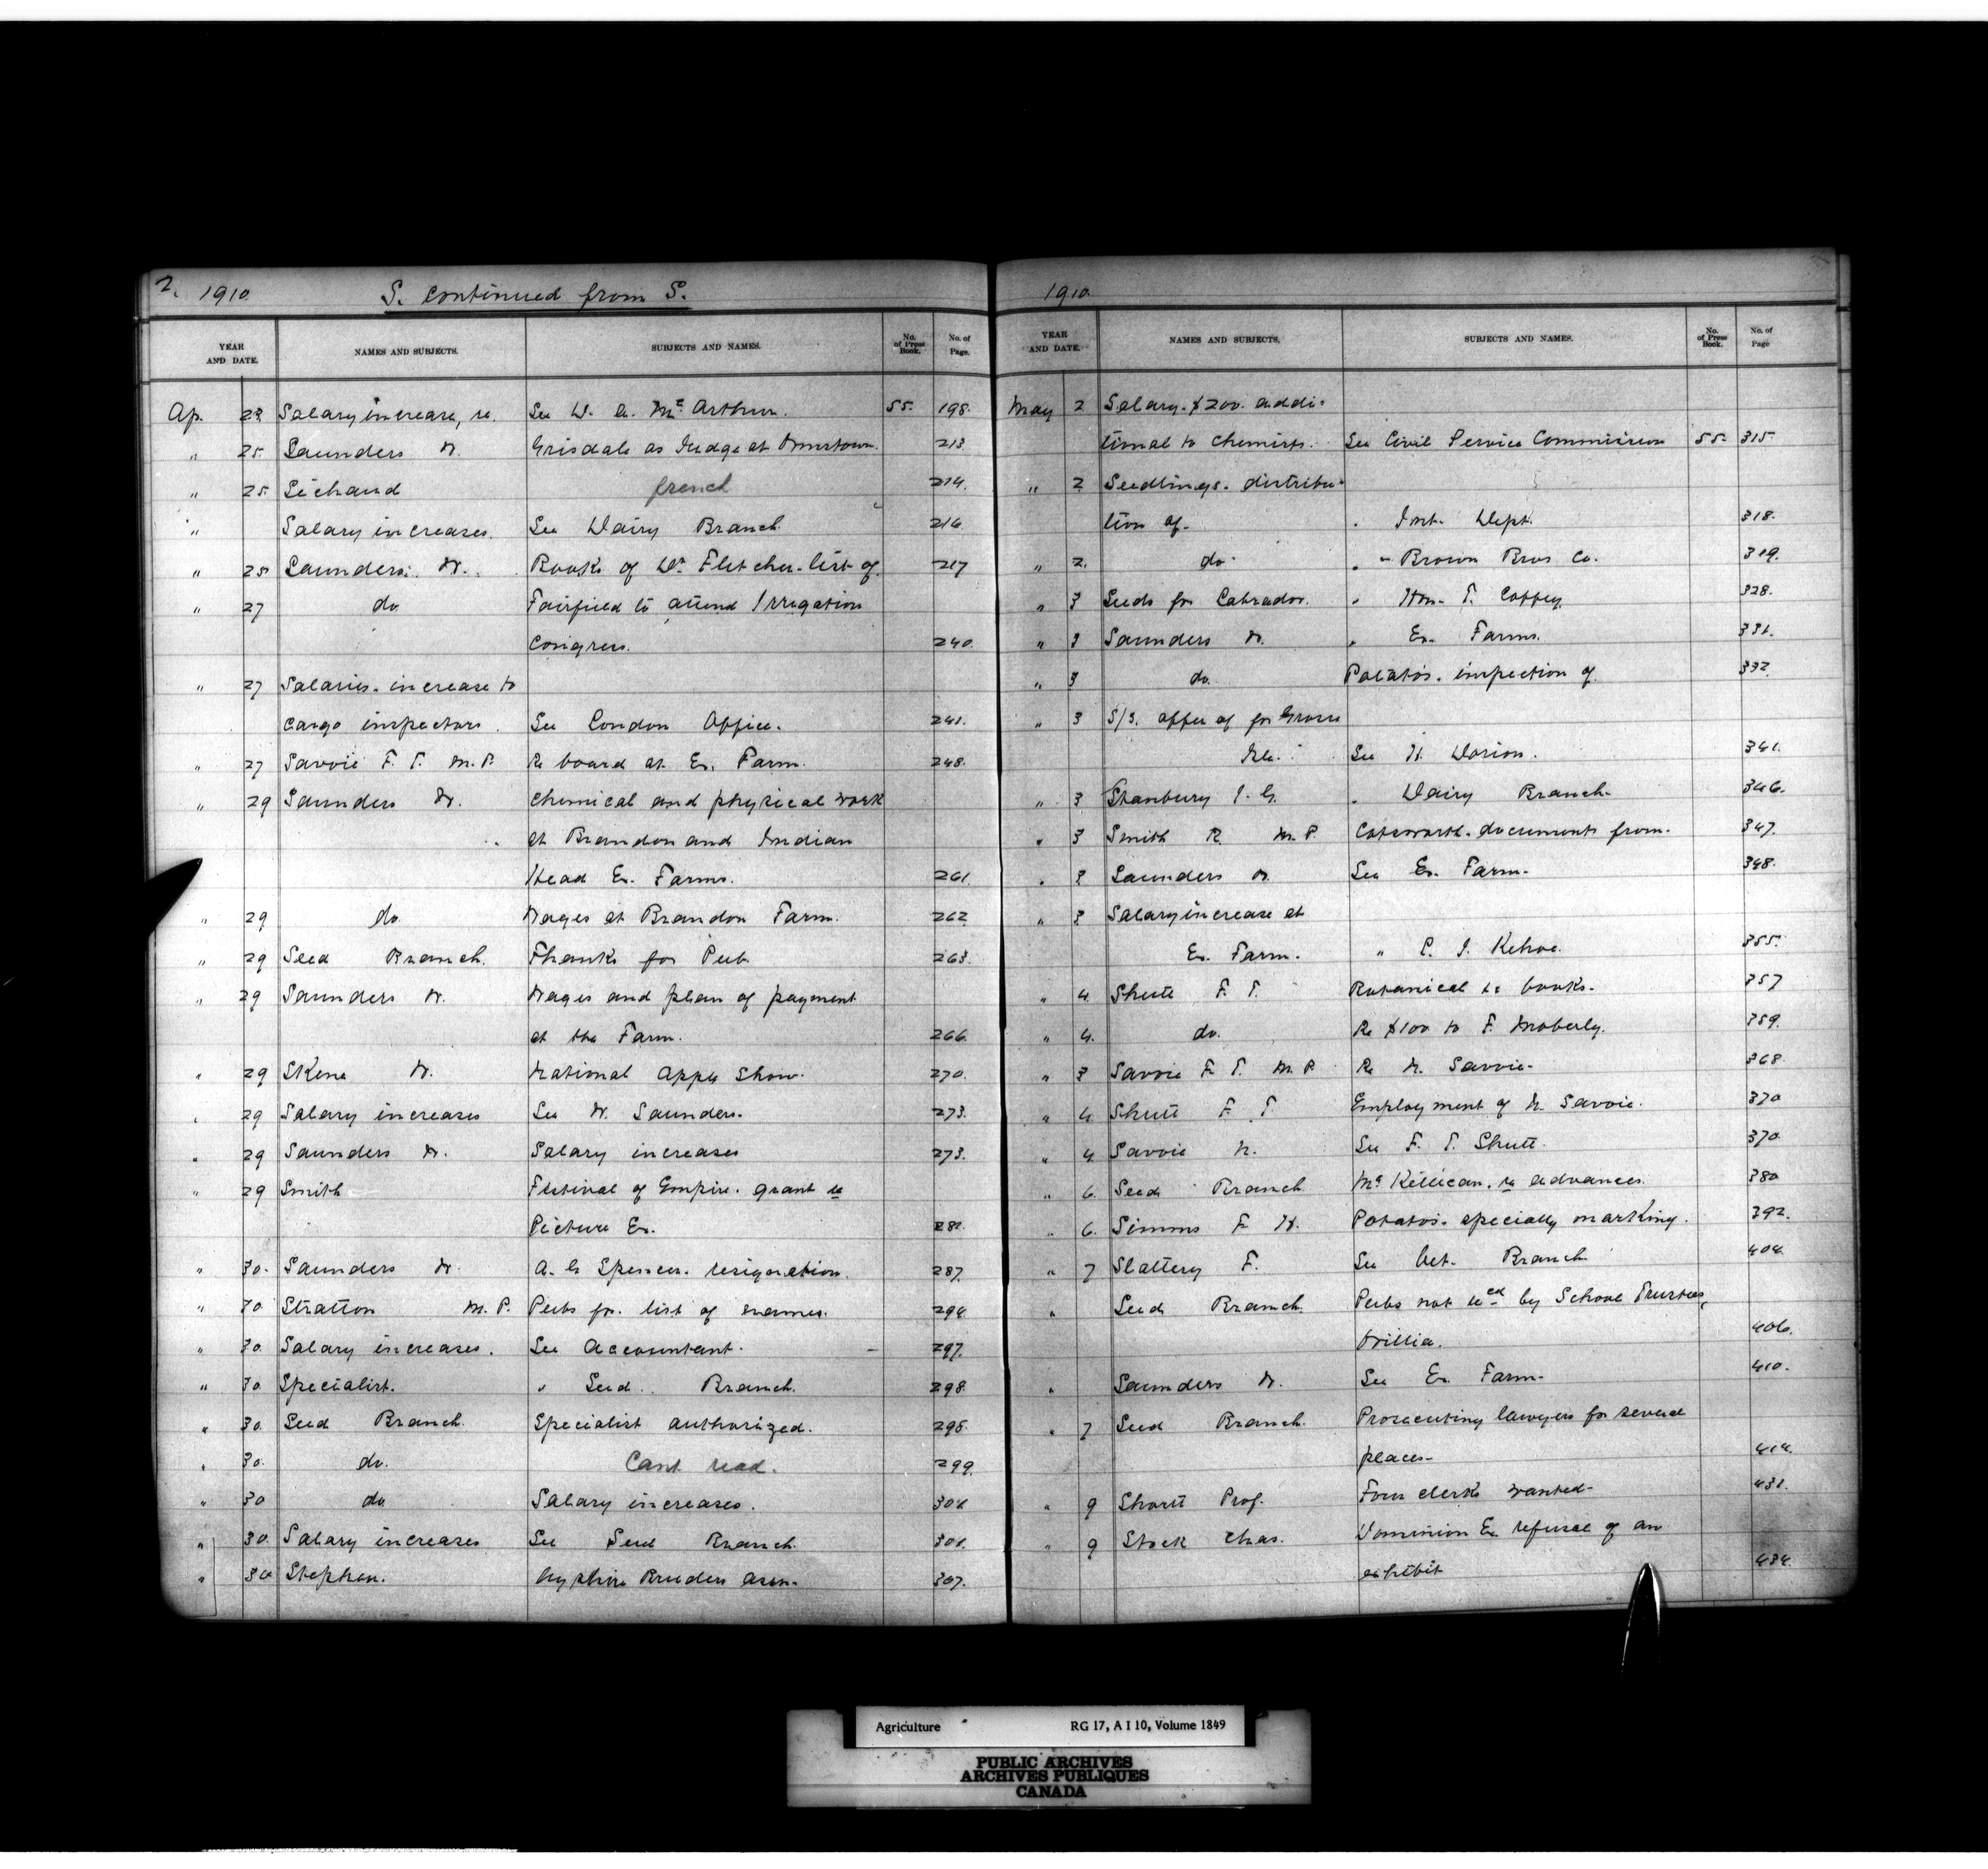 2. 1910 S. continued from S.
YEAR AND DATE. NAMES AND SUBJECTS. SUBJECTS AND NAMES. No. of Press Book. No. of Page.
Ap. 23 Salary increase, re. See W. A. McArthur. 55. 198.
" 25. Saunders W. Grisdale as Judge at Ormstown. 213.
" 25. french 214.
" Salary increases. See Dairy Branch. 216.
" 25 Saunders. W. Books of Dr Fletcher - list of. 217
" 27 do Fairfield to attend Irrigation
Congress. 240.
" 27 Salaries. increase to
cargo inspectors. See London Office. 241.
" 27 Savoie F. T. M.P. Re board at Ex. Farm. 248.
" 29 Saunders W. Chemical and physical work
at Brandon and Indian
Head Ex. Farms. 261.
" 29 do Wages at Brandon Farm. 262
" 29 Seed Branch. Thanks for Pub. 263.
" 29 Saunders W. Wages and plan of payment
at the Farm. 266.
" 29 Skene W. National Apple Show. 270.
" 29 Salary increases See W. Saunders. 273.
" 29 Saunders W. Salary increases 273.
" 29 Smith Festival of Empire. grant re
Picture Ex. 281.
" 30. Saunders W. A. G Spencer. resignation. 287.
" 30 Stratton M.P. Pubs for. list of names. 294.
" 30. Salary increases. See Accountant. 297.
" 30. Specialist. " Seed Branch. 298.
" 30. Seed Branch. Specialist authorized. 298.
" 30. do. Cant read. 299.
" 30 do Salary increases. 301.
" 30. Salary increases See Seed Branch. 301.
" 30 Stephen. Ayrshire Breeders Assn. 307.
1910.
YEAR AND DATE. NAMES AND SUBJECTS. SUBJECTS AND NAMES. No. of Press Book. No. of Page
May 2 Salary. $200. addi-
tional to Chemists. See Civil Service Commission 55. 315.
" 2 Seedlings. distribu-
tion of. " Int. Dept. 318.
" 2. do. " Brown Bros Co. 319.
" 3 Seeds for Labrador. " Wm. T. Coffey. 328.
" 3 Saunders W. " Ex. Farms. 331.
" 3 do. Potatos. inspection of. 332.
" 3 S/S. offer of for Grosse
Ile. See H. Dorion. 341.
" 3 Stanbury J. G. " Dairy Branch. 346.
" 3 Smith R. M.P. Cotsworth. documents from. 347.
" 3 Saunders W. See Ex. Farm. 348.
" 3 Salary increase at
Ex. Farm. " Kehoe. 355.
" 4. Shutt F. T. Botanical books. 357
" 4. do. Re $100 to F. Moberly. 359.
" 3 Savoie F. T. M.P. Re N. Savoie. 368
" 4. Shutt F. T. Employment of N. Savoie. 370
" 4 Savoie N. See F. T. Shutt. 370.
" 6. Seed Branch McKillican. re advances. 380
" 6. Simms F. H. Potatos. specially marking. 392.
" 7 Slattery F. See Vet. Branch 404.
" Seed Branch. Pubs not recd by School Trustees,
Orillia. 406.
" Saunders W. See Ex. Farm. 410.
" 7 Seed Branch. Prosecuting lawyers for several
places. 414.
" 9 Shortt Prof. Four clerks wanted. 431.
" 9 Stock Chas. Dominion Ex. refusal of an
exhibit 434.
Agriculture RG 17, A I 10, Volume 1849
PUBLIC ARCHIVES
ARCHIVES PUBLIQUES
CANADA